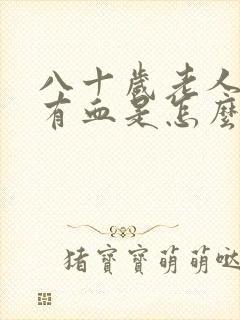 八十歲老人
有血是怎麼
猪寶寶萌萌噠